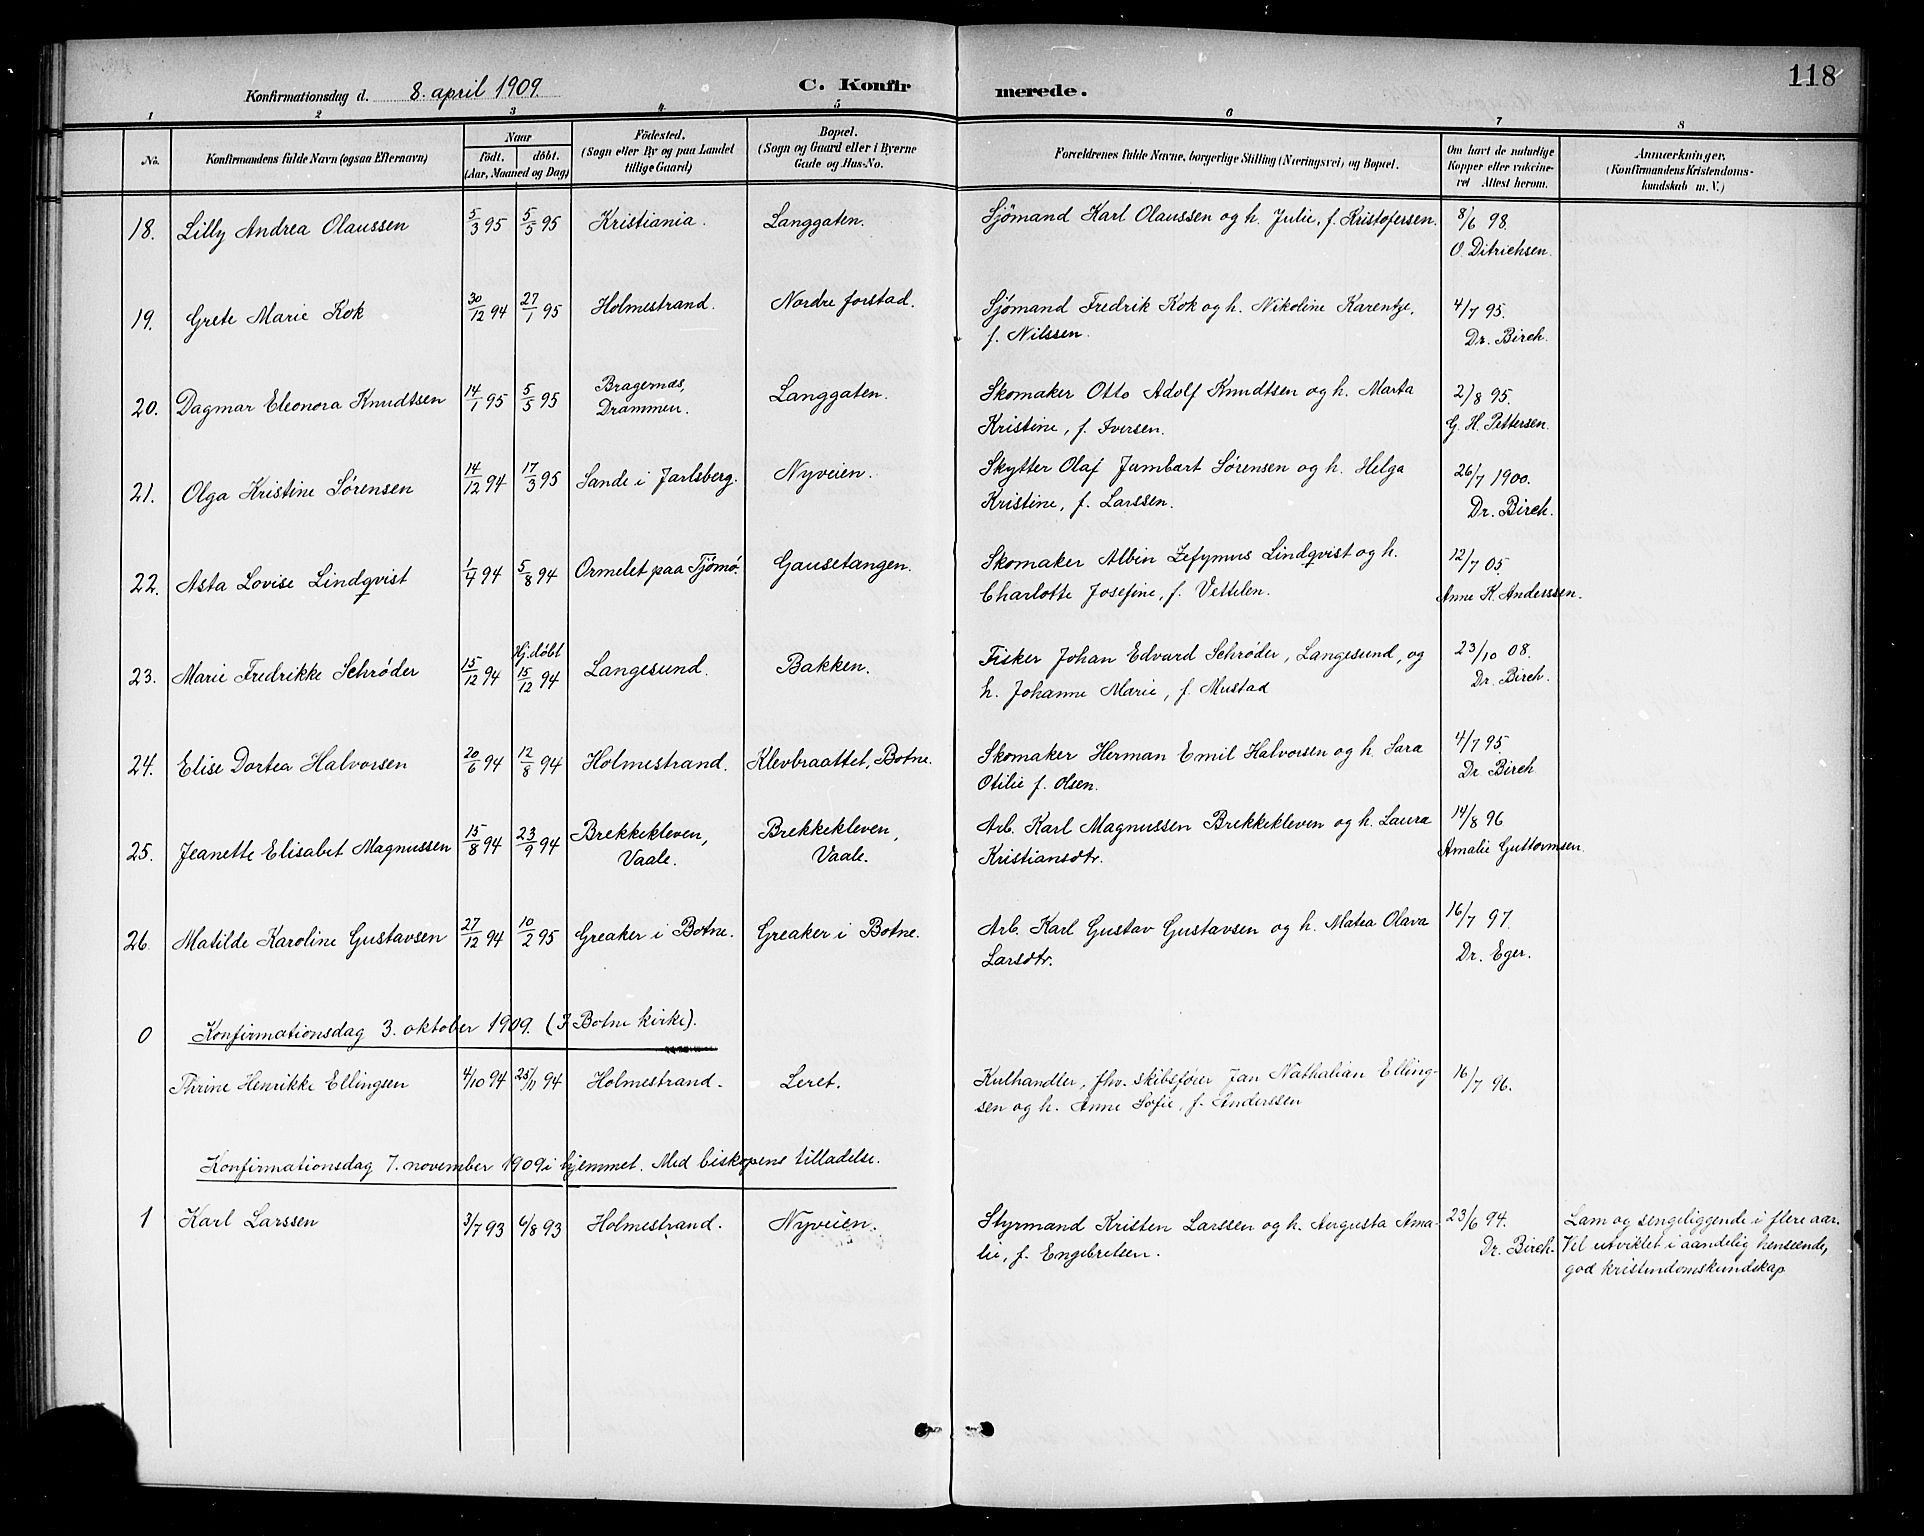 118
Konfirmationsdag d. 8. april 1909. C. Konfirmerede.
1 2 3 4 5 6 7 8
No. Konfirmandens fulde Navn (ogsaa Efternavn) Naar født. døbt. (Aar, Maaned og Dag) Födested. (Sogn eller By og paa Landet tillige Gaard) Bopæl. (Sogn og Gaard eller i Byerne Gade og Hus-No. Forældrenes fulde Navne, borgerlige Stilling (Næringsvei) og Bopæl. Om havt de naturlige Kopper eller vakcineret Attest herom. Anmærkninger. (Konfirmandens Kristendomskundskab m. V.)
18. Lilly Andrea Olaussen 5/3 95 5/5 95 Kristiania. Langgaten. Sjømand Karl Olaussen og h. Julie, f. Kristofersen. 8/6 98.
O. Ditrichsen.
19. Grete Marie Kok 30/12 94 27/1 95 Holmestrand. Nordre forstad. Sjømand Fredrik Kok og h. Nikoline Karentje, 4/7 95.
f. Nilssen. Dr. Birch.
20. Dagmar Eleonora Knudtsen 14/1 95 5/5 95 Bragernæs, Drammen. Langgaten. Skomaker Otto Adolf Knudtsen og h. Marta 2/8 95.
Kristine, f. Iversen. G. H. Pettersen.
21. Olga Kristine Sørensen 14/12 94 17/3 95 Sande i Jarlsberg. Nyveien. Skytter Olaf Jambart Sørensen og h. Helga 26/7 1900.
Kristine, f. Larssen. Dr. Birch.
22. Asta Lovise Lindqvist 1/4 94 5/8 94 Ormelet paa Tjømø. Gausetangen. Skomaker Albin Zefymus Lindqvist og h. 12/7 05.
Charlotte Josefine, f. Vettelen. Anne K. Anderssen.
23. Marie Fredrikke Schrøder 15/12 94 Hj. døbt 15/12 94 Langesund. Bakken. Fisker Johan Edvard Schrøder, Langesund, og 23/10 08.
h. Johanne Marie, f. Mustad Dr. Birch.
24. Elise Dortea Halvorsen 20/6 94 12/8 94 Holmestrand. Klevbraattet, Botne. Skomaker Herman Emil Halvorsen og h. Sara 4/7 95.
Otilie f. Olsen. Dr. Birch
25. Jeanette Elisabet Magnussen 15/8 94 23/9 94 Brekkekleven, Vaale. Brekkekleven, Vaale. Arb. Karl Magnussen Brekkekleven og h. Laura 14/8 96
Kristiansdtr. Amalie Guttormsen.
26. Matilde Karoline Gustavsen 27/12 94 10/2 95 Greaker i Botne. Greaker i Botne. Arb. Karl Gustav Gustavsen og h. Matea Olava 16/7 97.
Larsdtr. Dr. Eger.
0 Konfirmationsdag 3. oktober 1909. (I Botne kirke).
Thrine Henrikke Ellingsen 4/10 94 25/11 94 Holmestrand. Leret. Kulhandler, fhv. skibsfører Jan Nathalian Elling- 16/7 96.
sen og h. Anne Sofie, f. Anderssen
Konfirmationsdag 7. november 1909 i hjemmet. Med biskopens tilladelse.
1 Karl Larssen 3/7 93 6/8 93 Holmestrand. Nyveien. Styrmand Kristen Larssen og h. Augusta Ama- 23/6 94. Lam og sengeliggende i flere aar.
lie, f. Engebretsen. Dr. Birch. Vel utviklet i aandelig henseende,
god kristendomskundskap